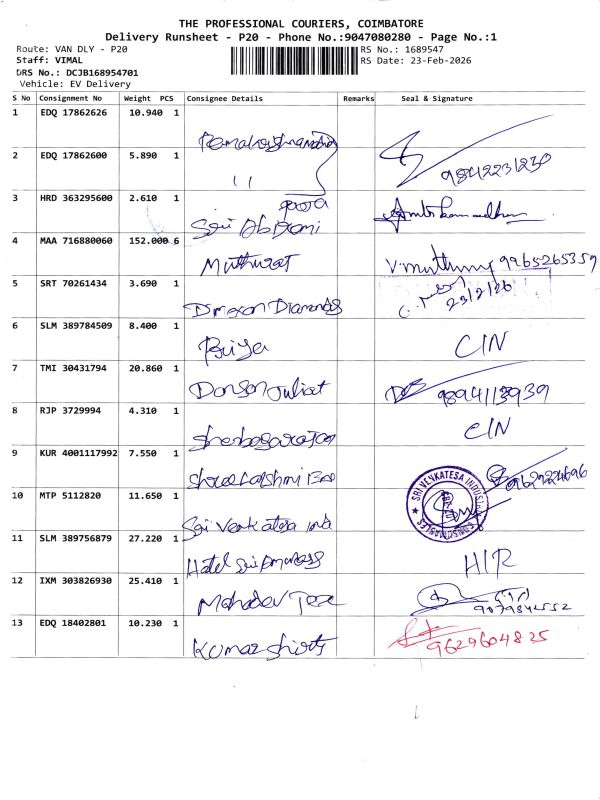 THE PROFESSIONAL COURIERS, COIMBATORE
Delivery Runsheet - P20 - Phone No.:9047080280 - Page No.:1
Route: VAN DLY - P20
RS No.: 1689547
Staff: VIMAL
RS Date: 23-Feb-2026
DRS No.: DCJB168954701
Vehicle: EV Delivery
S No Consignment No Weight PCS Consignee Details Remarks Seal & Signature
1 EDQ 17862626 10.940 1
2 EDQ 17862600 5.890 1 11 9842231230
3 HRD 363295600 2.610 1 Sri Abirami
4 MAA 716880060 152.000 6 Muthuraj V. muthuraj 9965265359
5 SRT 70261434 3.690 1 Dimexon Diamonds 23/2/26
6 SLM 389784509 8.400 1 Priya CIN
7 TMI 30431794 20.860 1 9894113939
8 RJP 3729994 4.310 1 Shenbagarajan CIN
9 KUR 4001117992 7.550 1 Shree Lakshmi
10 MTP 5112820 11.650 1 Sri Venkatesa ind SRI VENKATESA INDUSTR
11 SLM 389756879 27.220 1 Hotel Sri HIR
12 IXM 303826930 25.410 1 Mahadev Tex
13 EDQ 18402801 10.230 1 Kumar Shirts 9629604825